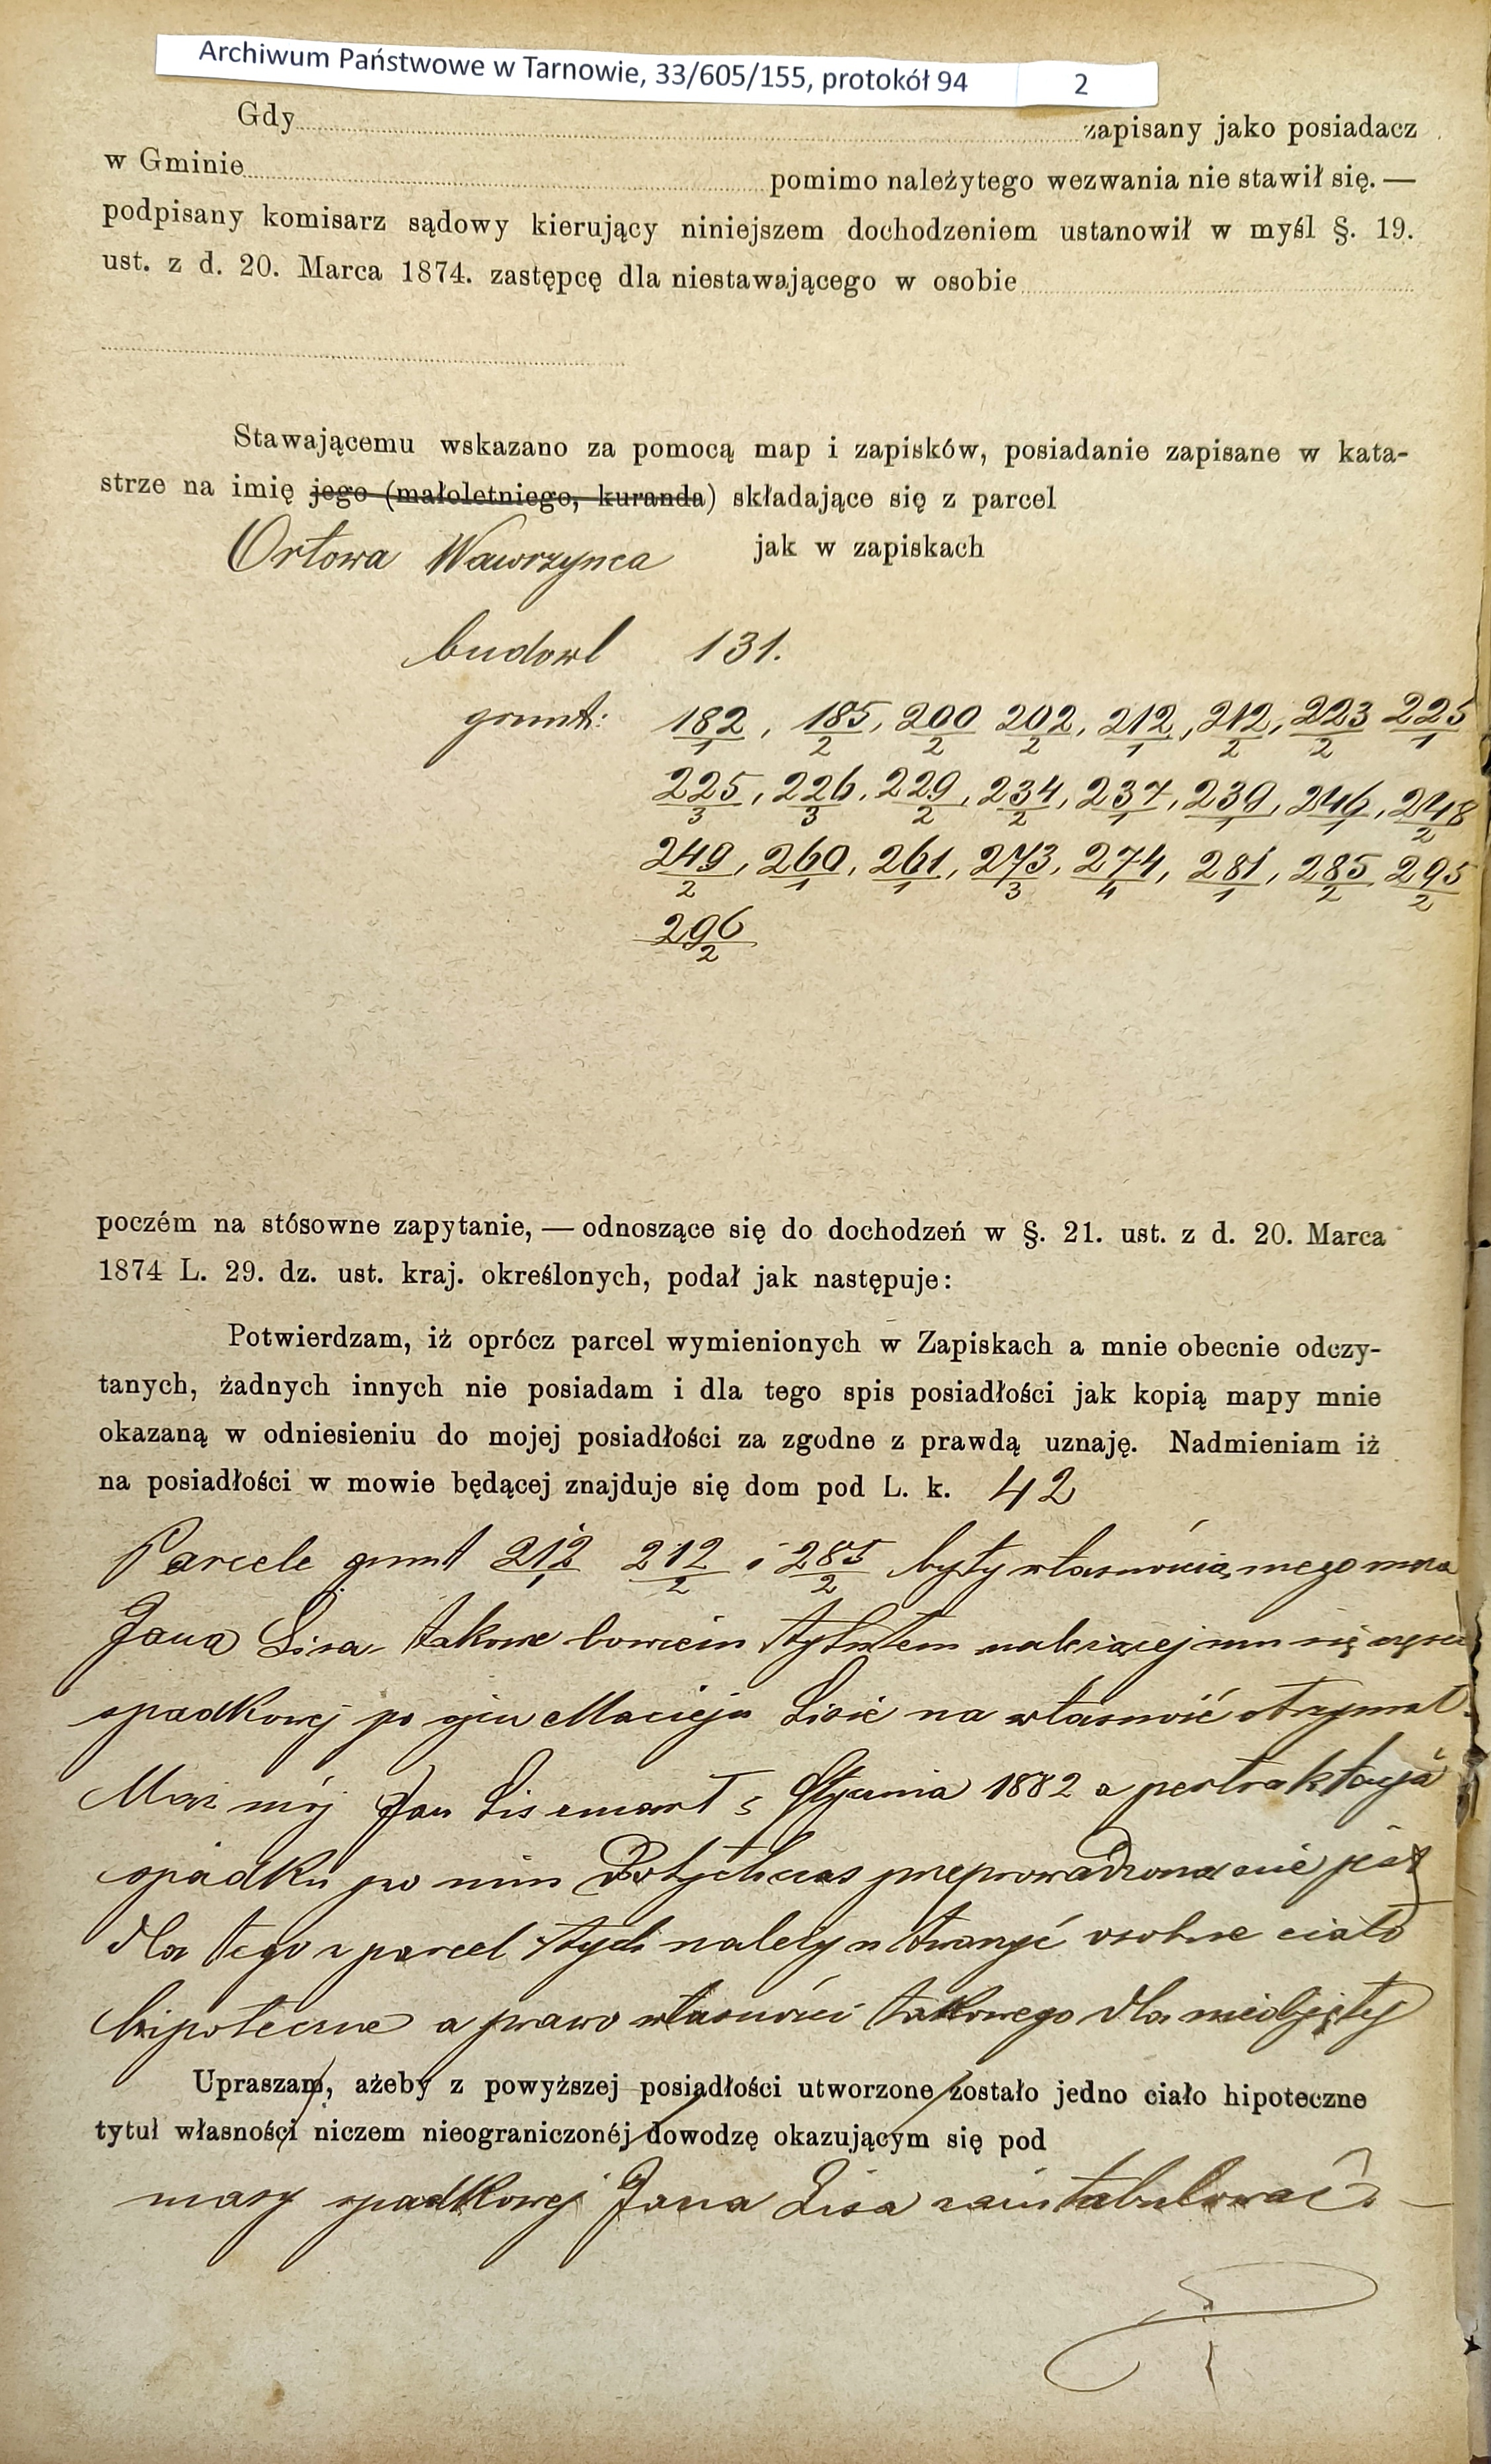 Archiwum Państwowe w Tarnowie, 33/605/155, protokół 94 2
Gdy zapisany jako posiadacz
w Gminie pomimo należytego wezwania nie stawił się. —
podpisany komisarz sądowy kierujący niniejszem dochodzeniem ustanowił w myśl §. 19.
ust. z d. 20. Marca 1874. zastępcę dla niestawającego w osobie
Stawającemu wskazano za pomocą map i zapisków, posiadanie zapisane w kata-
strze na imię jego (małoletniego, kuranda) składające się z parcel
Orłowa Wawrzynca jak w zapiskach
budowl 131.
grunt: 182/1, 185/2, 200/2 202/2, 212/1, 212/2, 223/2 225/1
225/3, 226/3, 229/2, 234/2, 237/1, 239/1, 246/1, 248/2
249/2, 260/1, 261/1, 273/3, 274/4, 281/1, 285/2 295/2
296/2
poczém na stósowne zapytanie, — odnoszące się do dochodzeń w §. 21. ust. z d. 20. Marca
1874 L. 29. dz. ust. kraj. określonych, podał jak następuje:
Potwierdzam, iż oprócz parcel wymienionych w Zapiskach a mnie obecnie odczy-
tanych, żadnych innych nie posiadam i dla tego spis posiadłości jak kopią mapy mnie
okazaną w odniesieniu do mojej posiadłości za zgodne z prawdą uznaję. Nadmieniam iż
na posiadłości w mowie będącej znajduje się dom pod L. k. 42
Parcele grunt 212/1 212/2 i 285/2 były własnością mego męża
Jana Lisa takowe bowiem tytułem należącej mu się części
spadkowej po ojcu Macieju Lisie na własność otrzymał.
Mąż mój Jan Lis umarł 5 Stycznia 1882 a pertraktacja
spadku po nim dotychczas przeprowadzona nie jest
dla tego z parcel tych należy utworzyć osobne ciało
hipoteczne a prawo własności takowego dla nieobjętej
Upraszam, ażeby z powyższej posiadłości utworzone zostało jedno ciało hipoteczne
tytuł własności niczem nieograniczonéj dowodzę okazującym się pod
masy spadkowej Jana Lisa zaintabulować. —